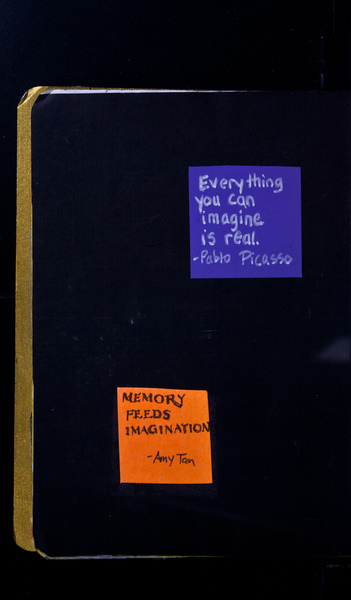 Everything
you can
imagine
is real.
-Pablo Picasso
MEMORY
FEEDS
IMAGINATION
-Amy Tan